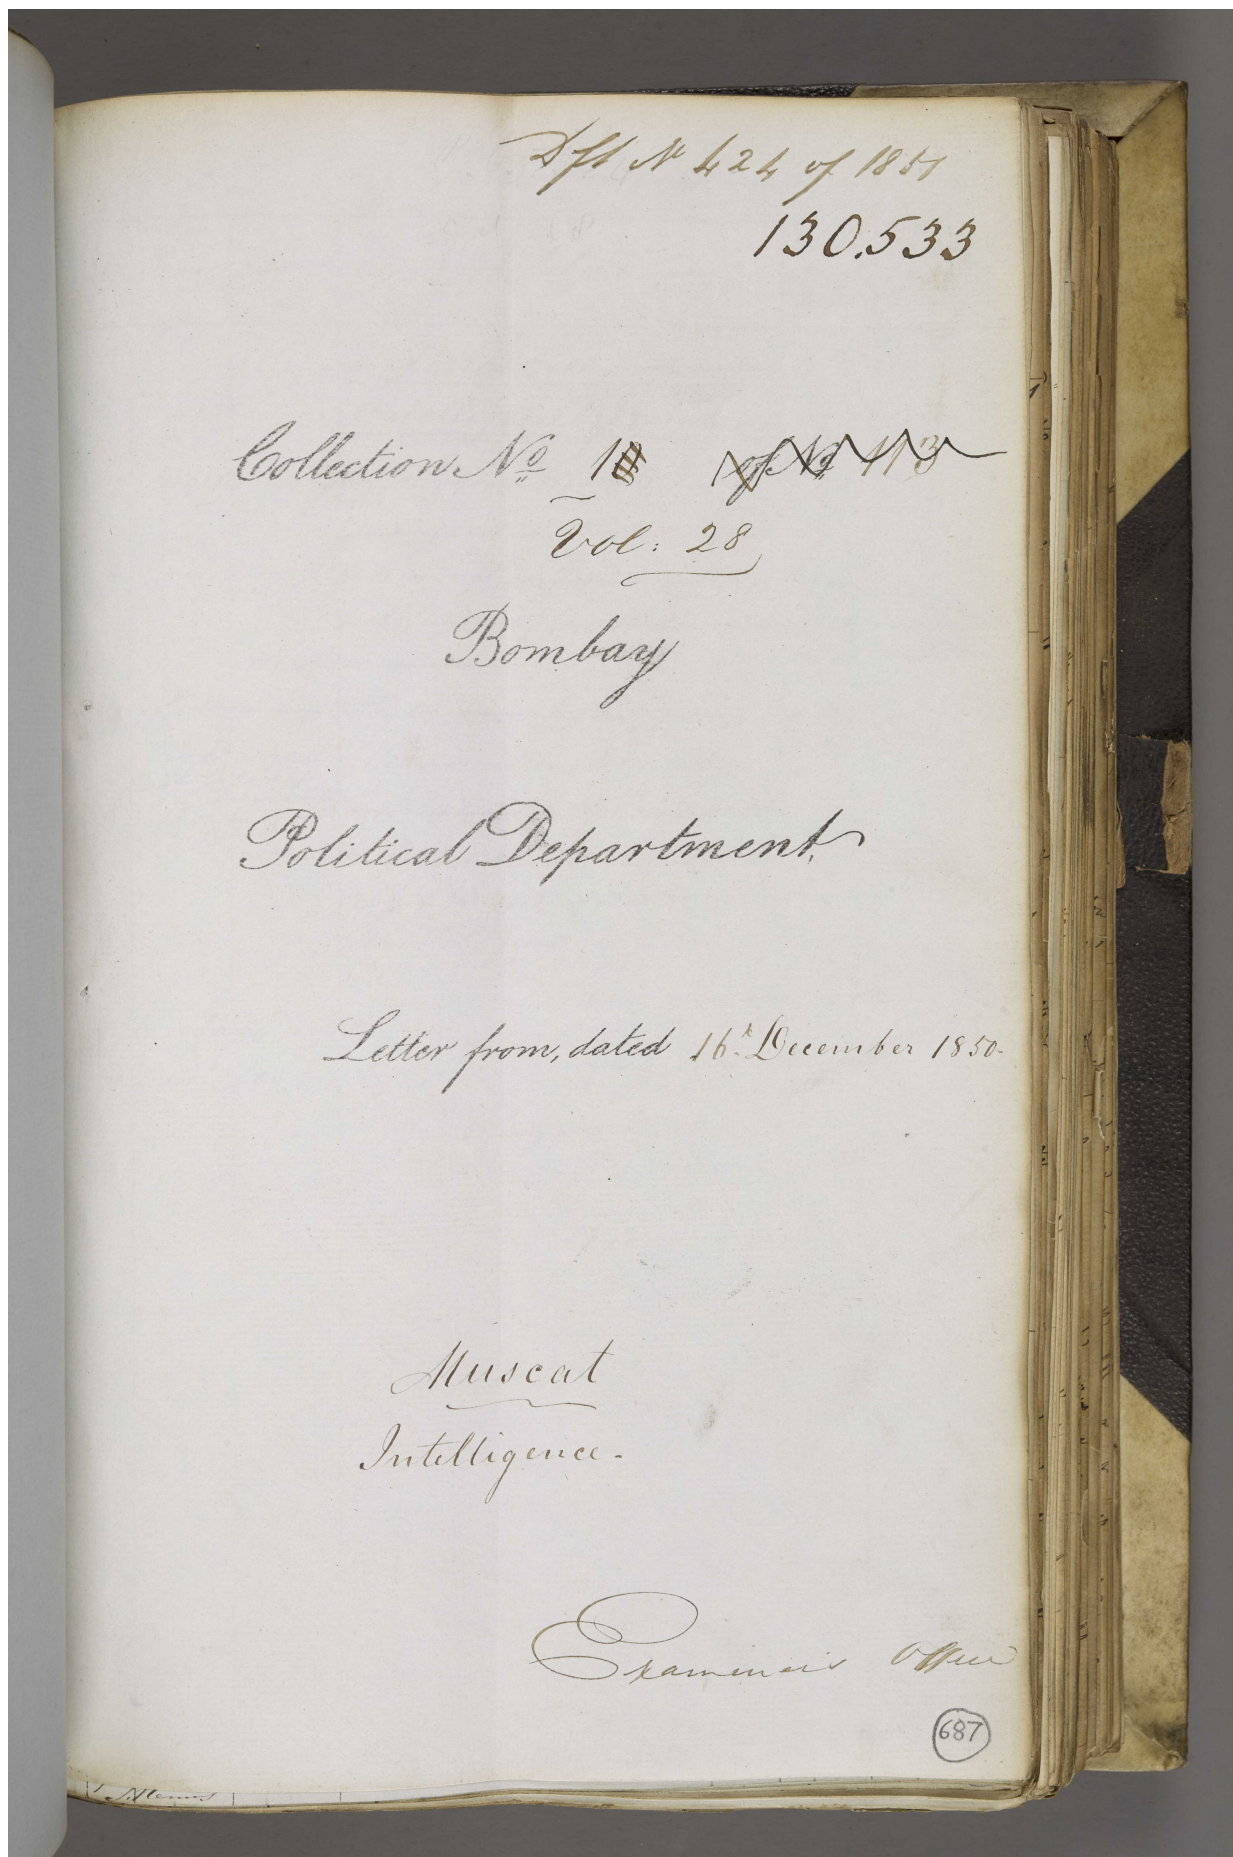 Dft No 424 of 1851
130.533
Collection No 1 of No 113
Vol: 28
Bombay
Political Department.
Letter from, dated 16th December 1850.
Muscat
Intelligence.
Examiners Office
687